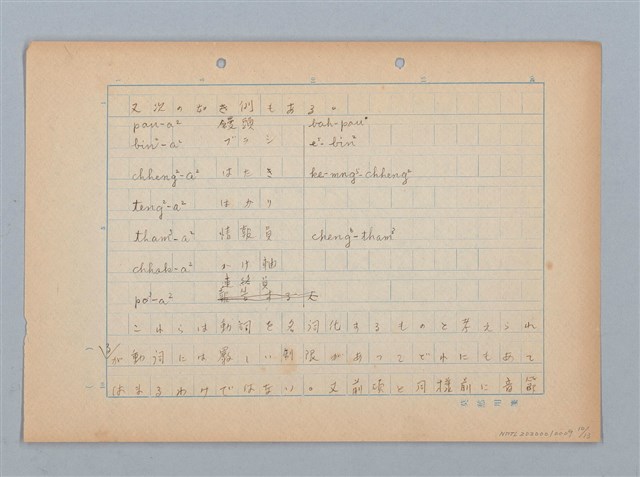 又次の如き例もある。
pau-a² 饅頭 bah-pau
bin²-a² ブラシ e²-bin²
chheng²-a² はたき ke-mng⁵-chheng²
teng²-a² はかり
tham³-a² 情報員 cheng⁵-tham³
chhak-a² かけ軸
連絡員
po³-a²
これらは動詞を名詞化するものと考えられ
るが動詞には厳しい制限があってどれにもあて
はまるわけではない。又前項と同様前に音節
NMTL